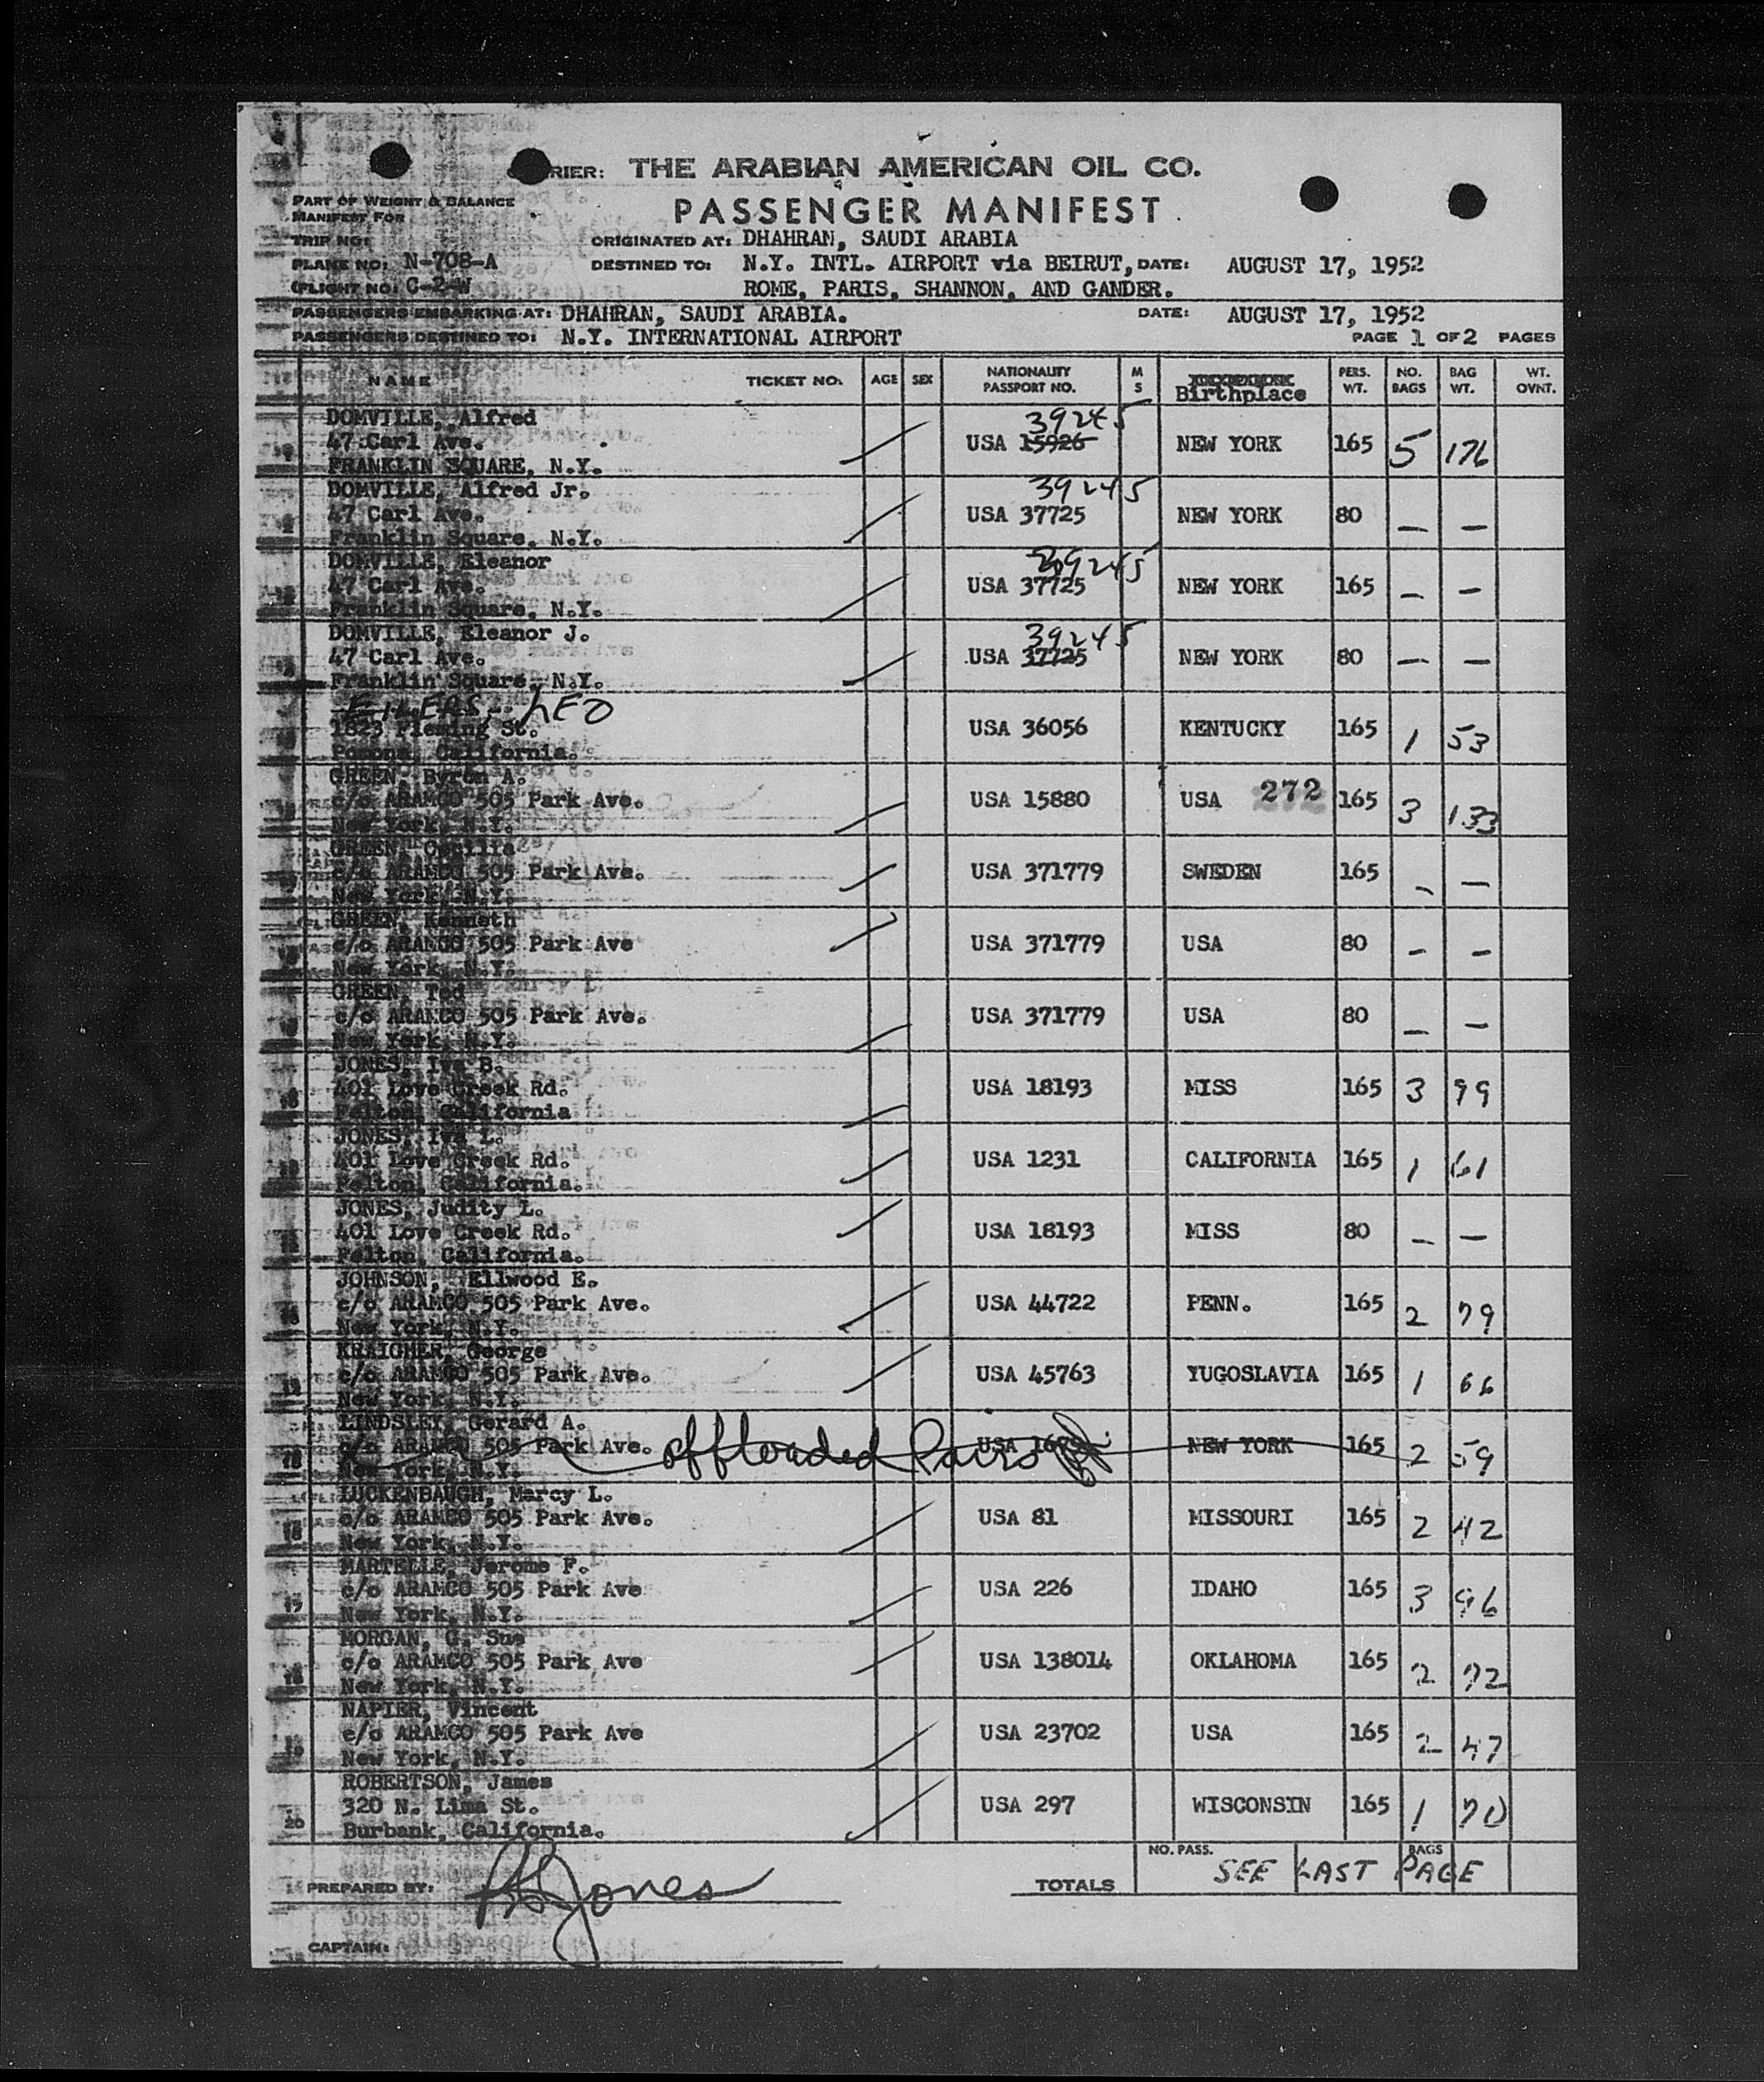 RIER: THE ARABIAN AMERICAN OIL CO.
PART OF WEIGHT & BALANCE
MANIFEST FOR
PASSENGER MANIFEST
TRIP NO:
ORIGINATED AT: DHAHRAN, SAUDI ARABIA
PLANE NO: N-708-A
DESTINED TO: N.Y. INTL. AIRPORT via BEIRUT, DATE: AUGUST 17, 1952
FLIGHT NO: C-2-W
ROME, PARIS, SHANNON, AND GANDER.
PASSENGERS EMBARKING AT: DHAHRAN, SAUDI ARABIA. DATE: AUGUST 17, 1952
PASSENGERS DESTINED TO: N.Y. INTERNATIONAL AIRPORT PAGE 1 OF 2 PAGES
NAME TICKET NO. AGE SEX NATIONALITY PASSPORT NO. M S Birthplace PERS. WT. NO. BAGS BAG WT. WT. OVNT.
DOMVILLE, Alfred 39245
47 Carl Ave. USA 15926 NEW YORK 165 5 176
FRANKLIN SQUARE, N.Y.
DOMVILLE, Alfred Jr. 39245
47 Carl Ave. USA 37725 NEW YORK 80 — —
Franklin Square, N.Y.
DOMVILLE, Eleanor 39245
47 Carl Ave. USA 37725 NEW YORK 165 — —
Franklin Square, N.Y.
DOMVILLE, Eleanor J. 39245
47 Carl Ave. USA 37725 NEW YORK 80 — —
Franklin Square, N.Y.
EILERS, LEO
1823 Fleming St. USA 36056 KENTUCKY 165 1 53
Pomona, California.
GREEN, Byron A.
c/o ARAMCO 505 Park Ave. USA 15880 USA 272 165 3 133
New York, N.Y.
GREEN, Cecilia
c/o ARAMCO 505 Park Ave. USA 371779 SWEDEN 165 — —
New York, N.Y.
GREEN, Kenneth
c/o ARAMCO 505 Park Ave USA 371779 USA 80 — —
New York, N.Y.
GREEN, Ted
c/o ARAMCO 505 Park Ave. USA 371779 USA 80 — —
New York, N.Y.
JONES, Iva B.
401 Love Creek Rd. USA 18193 MISS 165 3 99
Felton, California
JONES, Iva L.
401 Love Creek Rd. USA 1231 CALIFORNIA 165 1 61
Felton, California.
JONES, Judity L.
401 Love Creek Rd. USA 18193 MISS 80 — —
Felton, California.
JOHNSON, Ellwood E.
c/o ARAMCO 505 Park Ave. USA 44722 PENN. 165 2 79
New York, N.Y.
KRAIGHER, George
c/o ARAMCO 505 Park Ave. USA 45763 YUGOSLAVIA 165 1 66
New York, N.Y.
LINDSLEY, Gerard A.
c/o ARAMCO 505 Park Ave. offloaded Paris USA NEW YORK 165 2 59
New York, N.Y.
LUCKENBAUGH, Marcy L.
c/o ARAMCO 505 Park Ave. USA 81 MISSOURI 165 2 42
New York, N.Y.
MARTELLE, Jerome F.
c/o ARAMCO 505 Park Ave USA 226 IDAHO 165 3 96
New York, N.Y.
MORGAN, G. Sue
c/o ARAMCO 505 Park Ave USA 138014 OKLAHOMA 165 2 72
New York, N.Y.
NAPIER, Vincent
c/o ARAMCO 505 Park Ave USA 23702 USA 165 2 47
New York, N.Y.
ROBERTSON, James
320 N. Lima St. USA 297 WISCONSIN 165 1 70
20
Burbank, California.
NO. PASS. BAGS
PREPARED BY: Jones TOTALS SEE LAST PAGE
CAPTAIN: